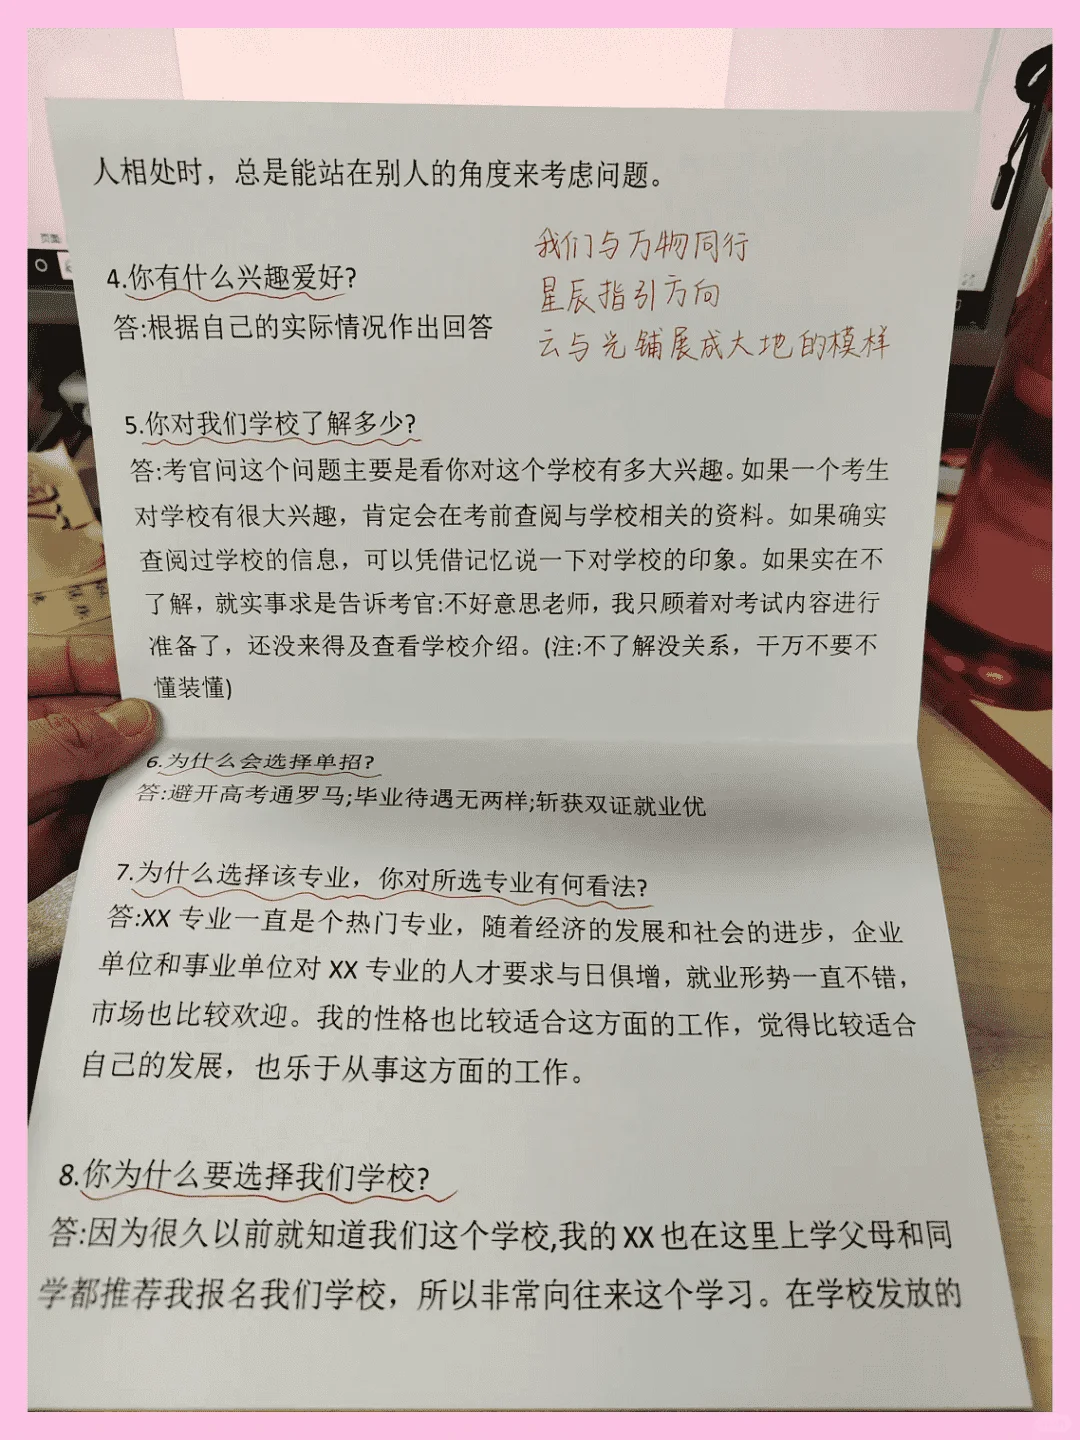 人相处时，总是能站在别人的角度来考虑问题。
我们与万物同行
4.你有什么兴趣爱好?
星辰指引方向
答:根据自己的实际情况作出回答
云与光铺展成大地的模样
5.你对我们学校了解多少?
答:考官问这个问题主要是看你对这个学校有多大兴趣。如果一个考生
对学校有很大兴趣，肯定会在考前查阅与学校相关的资料。如果确实
查阅过学校的信息，可以凭借记忆说一下对学校的印象。如果实在不
了解，就实事求是告诉考官:不好意思老师，我只顾着对考试内容进行
准备了，还没来得及查看学校介绍。(注:不了解没关系，干万不要不
懂装懂)
6.为什么会选择单招?
答:避开高考通罗马;毕业待遇无两样;斩获双证就业优
7.为什么选择该专业，你对所选专业有何看法?
答:XX 专业一直是个热门专业，随着经济的发展和社会的进步，企业
单位和事业单位对 XX 专业的人才要求与日俱增，就业形势一直不错，
市场也比较欢迎。我的性格也比较适合这方面的工作，觉得比较适合
自己的发展，也乐于从事这方面的工作。
8.你为什么要选择我们学校?
答:因为很久以前就知道我们这个学校,我的 XX 也在这里上学父母和同
学都推荐我报名我们学校，所以非常向往来这个学习。在学校发放的